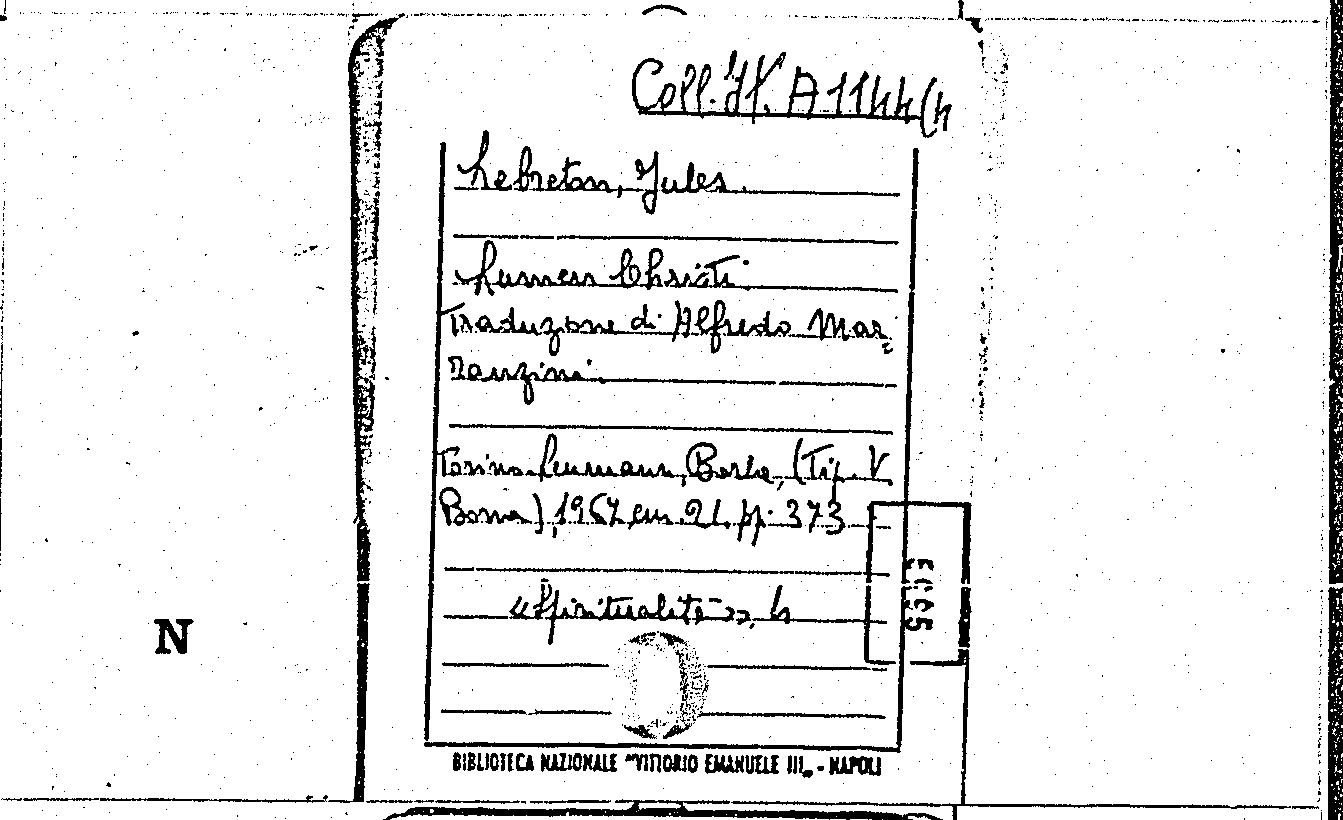 Coll. It. A 1144 (4
Lebreton, Jules.
Lumen Christi.
Traduzione di Alfredo Mar=
ranzini.
Torino-Leumann, Borla, (Tip. V.
Bona), 1967, cm. 21. pp. 373
«Spiritualité», 4
N
BIBLIOTECA NAZIONALE "VITTORIO EMANUELE III„ - NAPOLI